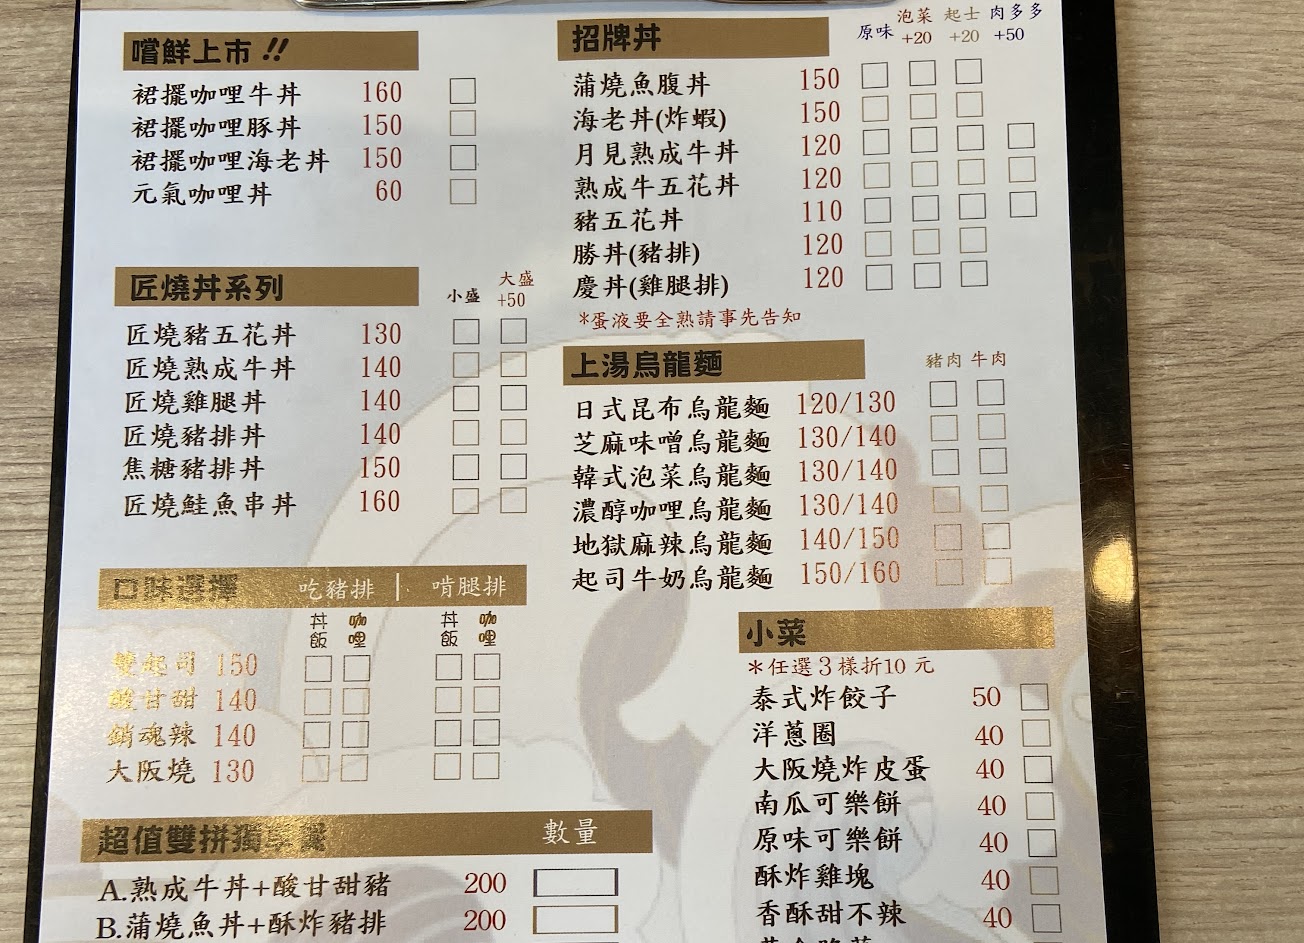 嚐鮮上市!!
裙擺咖哩牛丼 160
裙擺咖哩豚丼 150
裙擺咖哩海老丼 150
元氣咖哩丼 60
匠燒丼系列 小盛 大盛+50
匠燒豬五花丼 130
匠燒熟成牛丼 140
匠燒雞腿丼 140
匠燒豬排丼 140
焦糖豬排丼 150
匠燒鮭魚串丼 160
口味選擇 吃豬排 | 啃腿排
丼飯 咖哩 丼飯 咖哩
雙起司 150
酸甘甜 140
銷魂辣 140
大阪燒 130
超值雙拼獨享餐 數量
A.熟成牛丼+酸甘甜豬 200
B.蒲燒魚丼+酥炸豬排 200
招牌丼 原味 泡菜+20 起士+20 肉多多+50
蒲燒魚腹丼 150
海老丼(炸蝦) 150
月見熟成牛丼 120
熟成牛五花丼 120
豬五花丼 110
勝丼(豬排) 120
慶丼(雞腿排) 120
*蛋液要全熟請事先告知
上湯烏龍麵 豬肉 牛肉
日式昆布烏龍麵 120/130
芝麻味噌烏龍麵 130/140
韓式泡菜烏龍麵 130/140
濃醇咖哩烏龍麵 130/140
地獄麻辣烏龍麵 140/150
起司牛奶烏龍麵 150/160
小菜
*任選3樣折10元
泰式炸餃子 50
洋蔥圈 40
大阪燒炸皮蛋 40
南瓜可樂餅 40
原味可樂餅 40
酥炸雞塊 40
香酥甜不辣 40